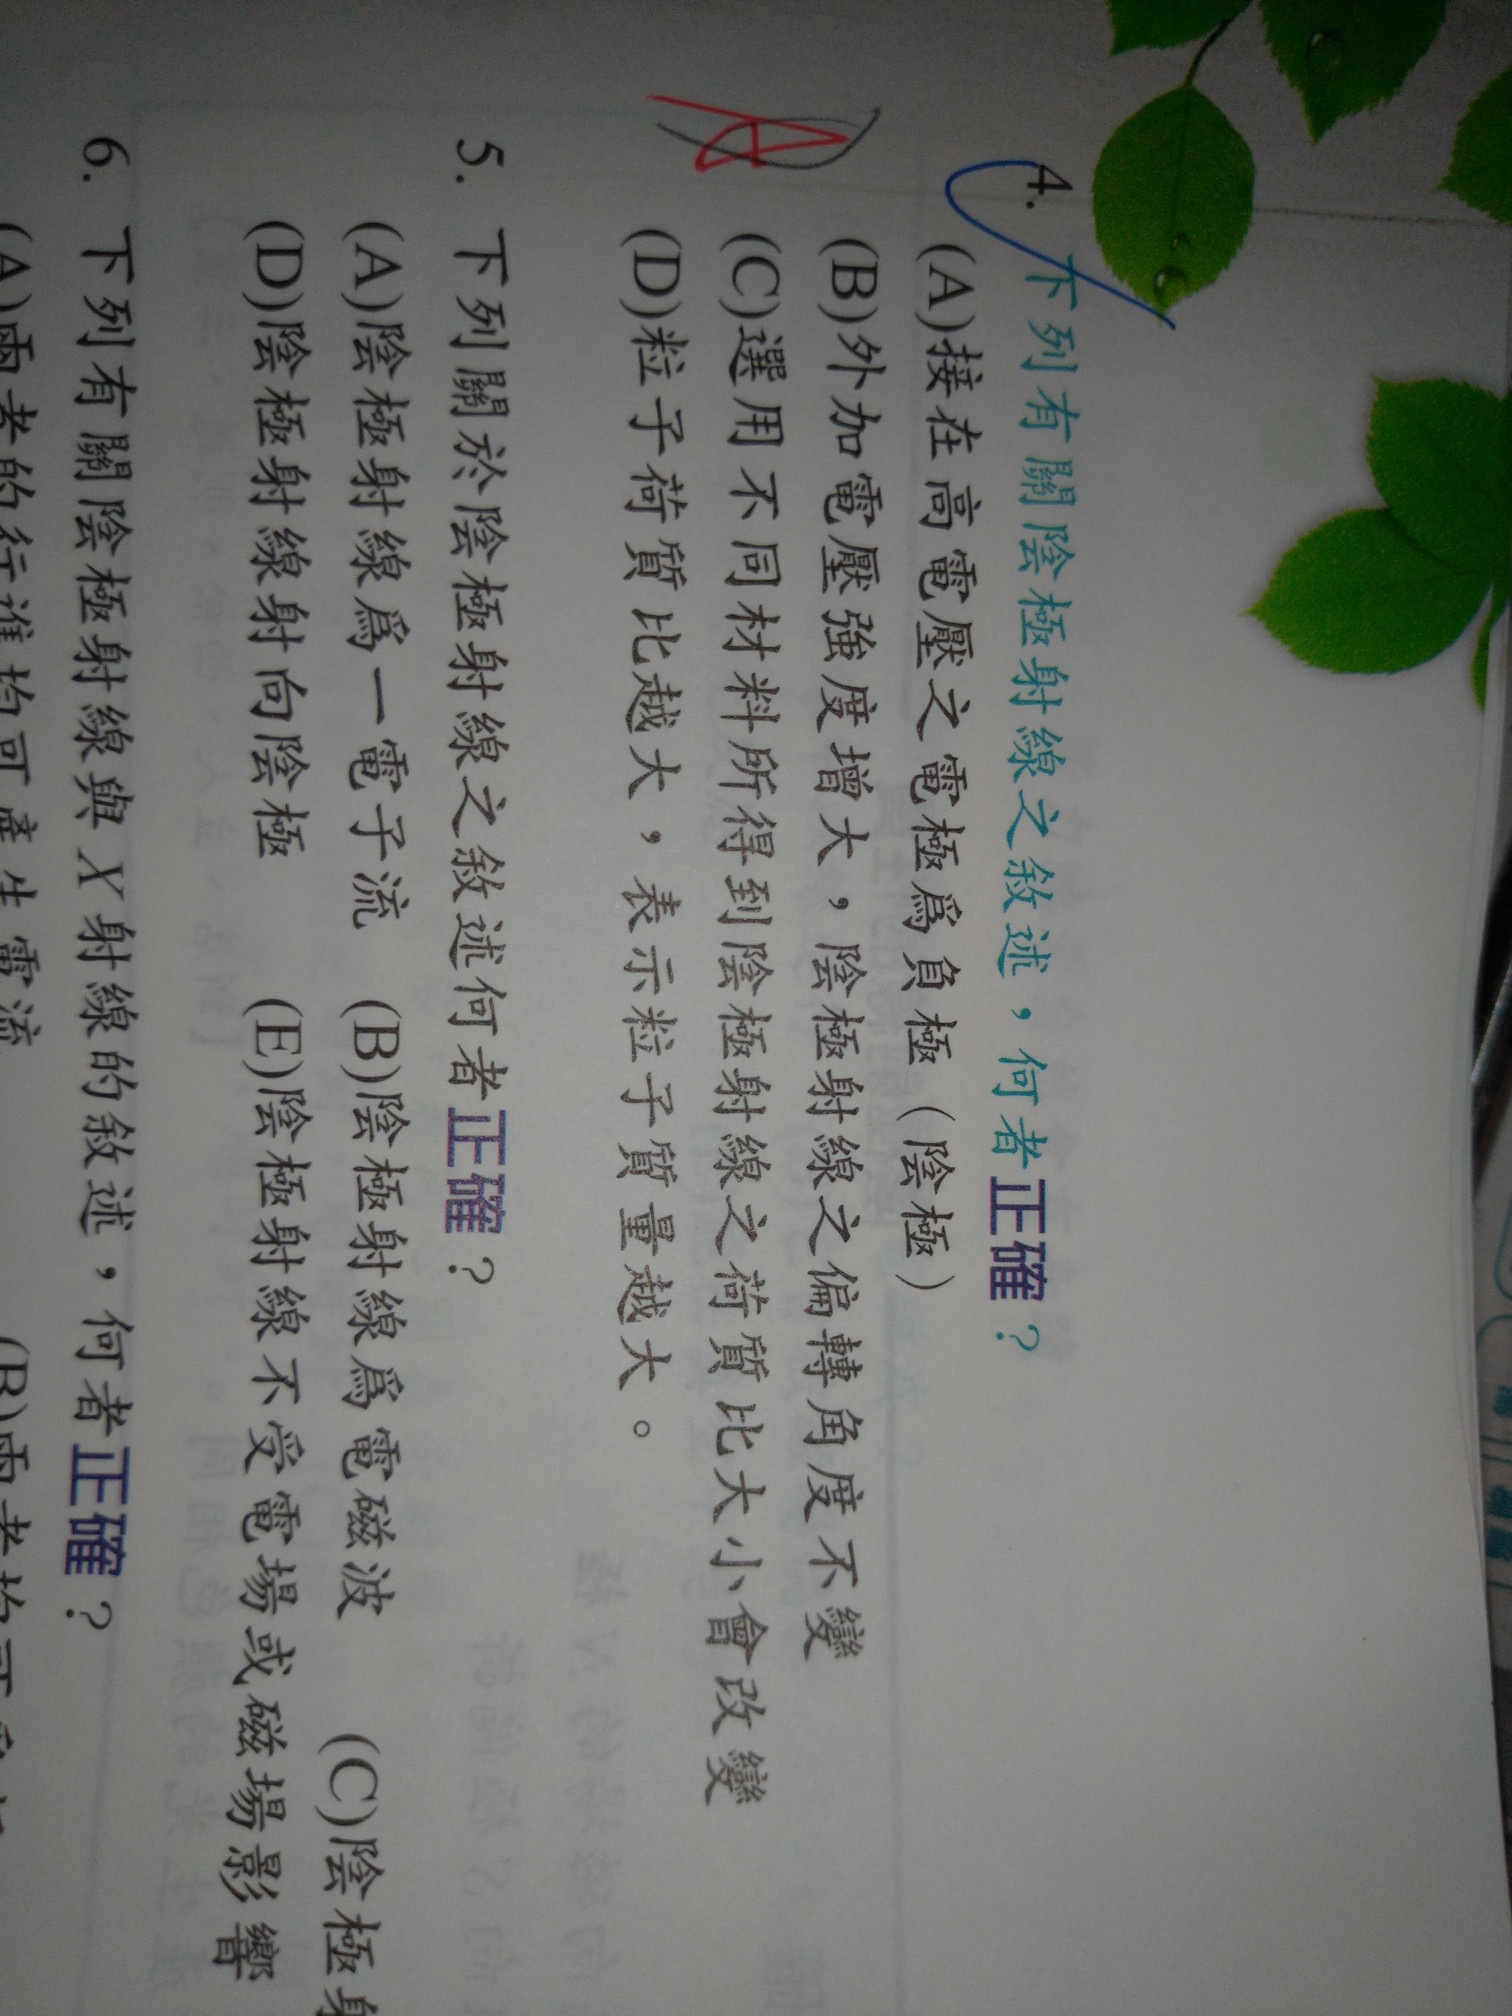 4. 下列有關陰極射線之敘述，何者正確？
(A)接在高電壓之電極爲負極（陰極）
(B)外加電壓強度增大，陰極射線之偏轉角度不變
(C)選用不同材料所得到陰極射線之荷質比大小會改變
(D)粒子荷質比越大，表示粒子質量越大。
A
5. 下列關於陰極射線之敘述何者正確？
(A)陰極射線爲一電子流 (B)陰極射線爲電磁波 (C)陰極射
(D)陰極射線射向陰極 (E)陰極射線不受電場或磁場影響
6. 下列有關陰極射線與X射線的敘述，何者正確？
(A)兩者的行進均可產生電流 (B)兩者均可